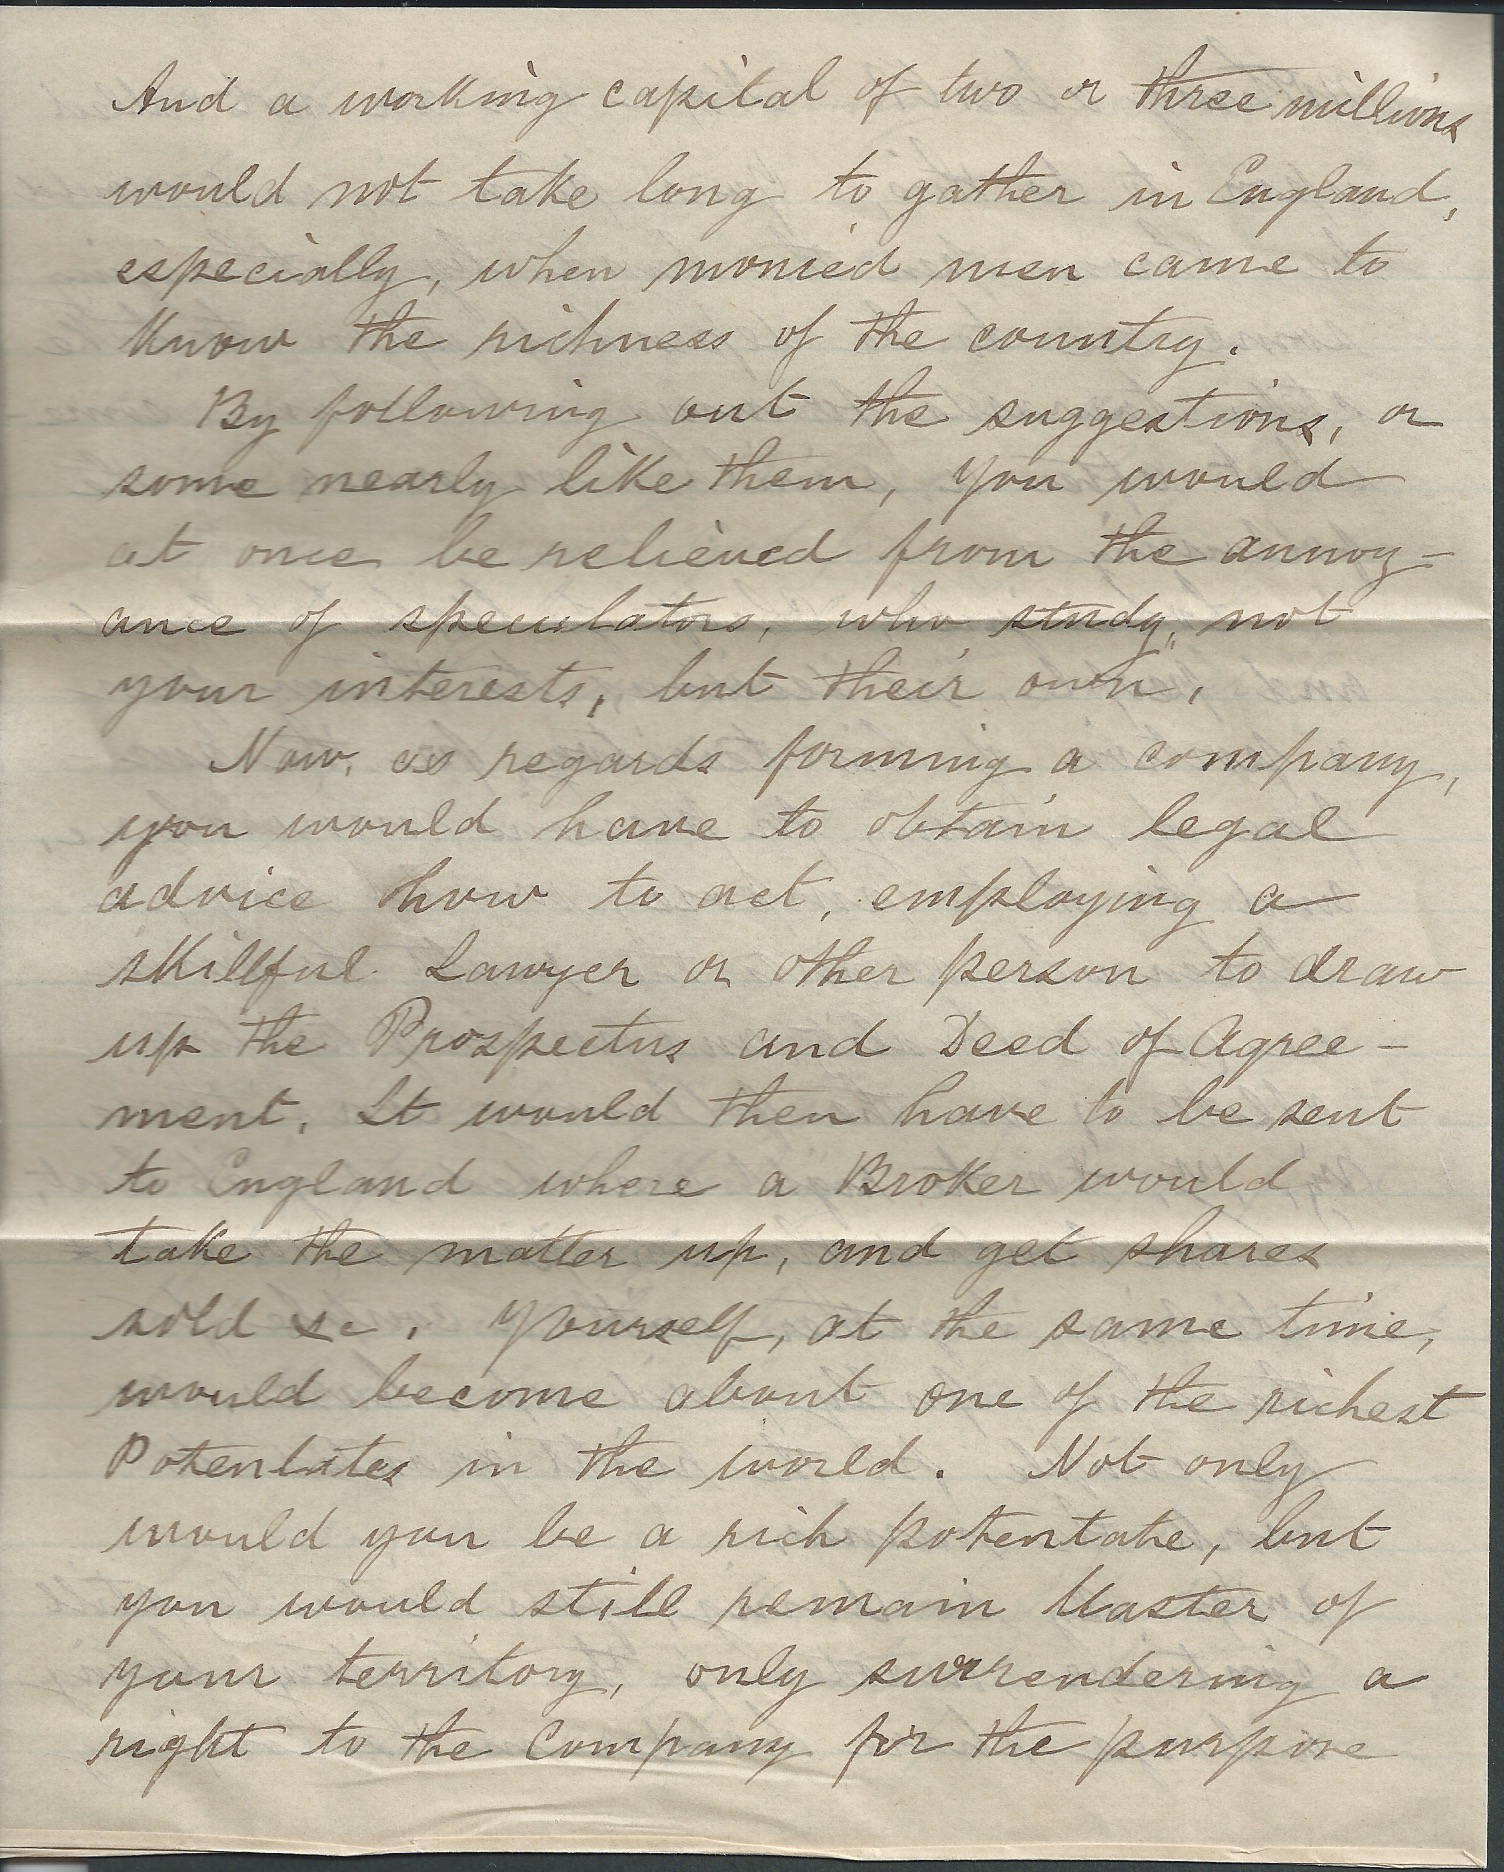 And a working capital of two or three millions
would not take long to gather in England,
especially, when monied men came to
know the richness of the country.
By following out the suggestions, or
some nearly like them, you would
at once be relieved from the annoy-
ance of speculators, who study, not
your interests, but their own,
Now, as regards forming a company,
you would have to obtain legal
advice how to act, employing a
skillful Lawyer or other person to draw
up the Prospectus and Deed of Agree-
ment, It would then have to be sent
to England where a Broker would
take the matter up, and get shares
sold &c. Yourself, at the same time,
would become about one of the richest
Potentates in the world. Not only
would you be a rich potentate, but
you would still remain Master of
your territory, only surrendering a
right to the Company for the purpose